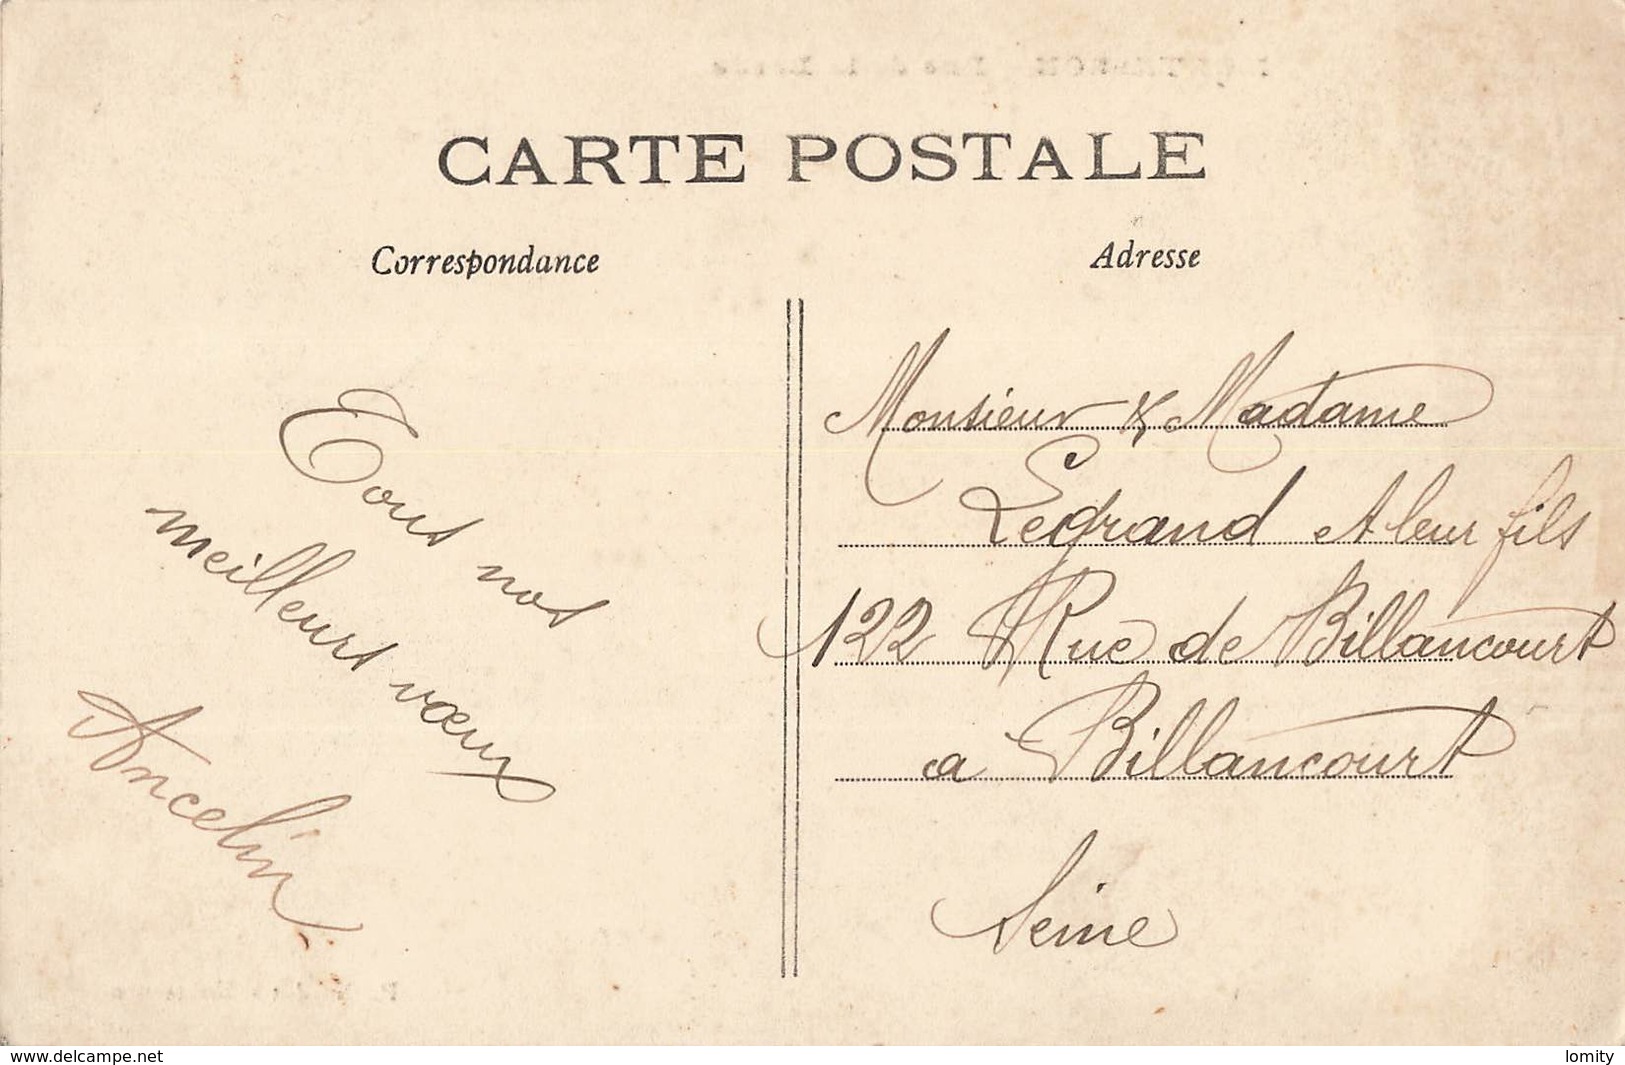 CARTE POSTALE
Correspondance
Adresse
Tous nos
meilleurs vœux
Ancelin
Monsieur & Madame
Legrand et leur fils
122 Rue de Billancourt
a Billancourt
Seine
www.delcampe.net
lomity